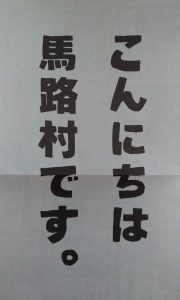 こんにちは
馬路村です。